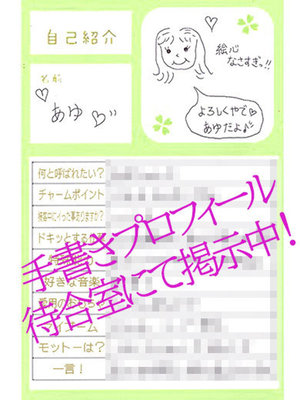 自己紹介
絵心
なさすぎっ!!
♡あゆ♡
よろしくやで
あゆだよ♪
何と呼ばれたい?
チャームポイント
接客中にイった事ありますか?
ドキッとする
手書きプロフィール
好きな音楽
待合室にて掲示中!
マイブーム
モットーは?
一言!